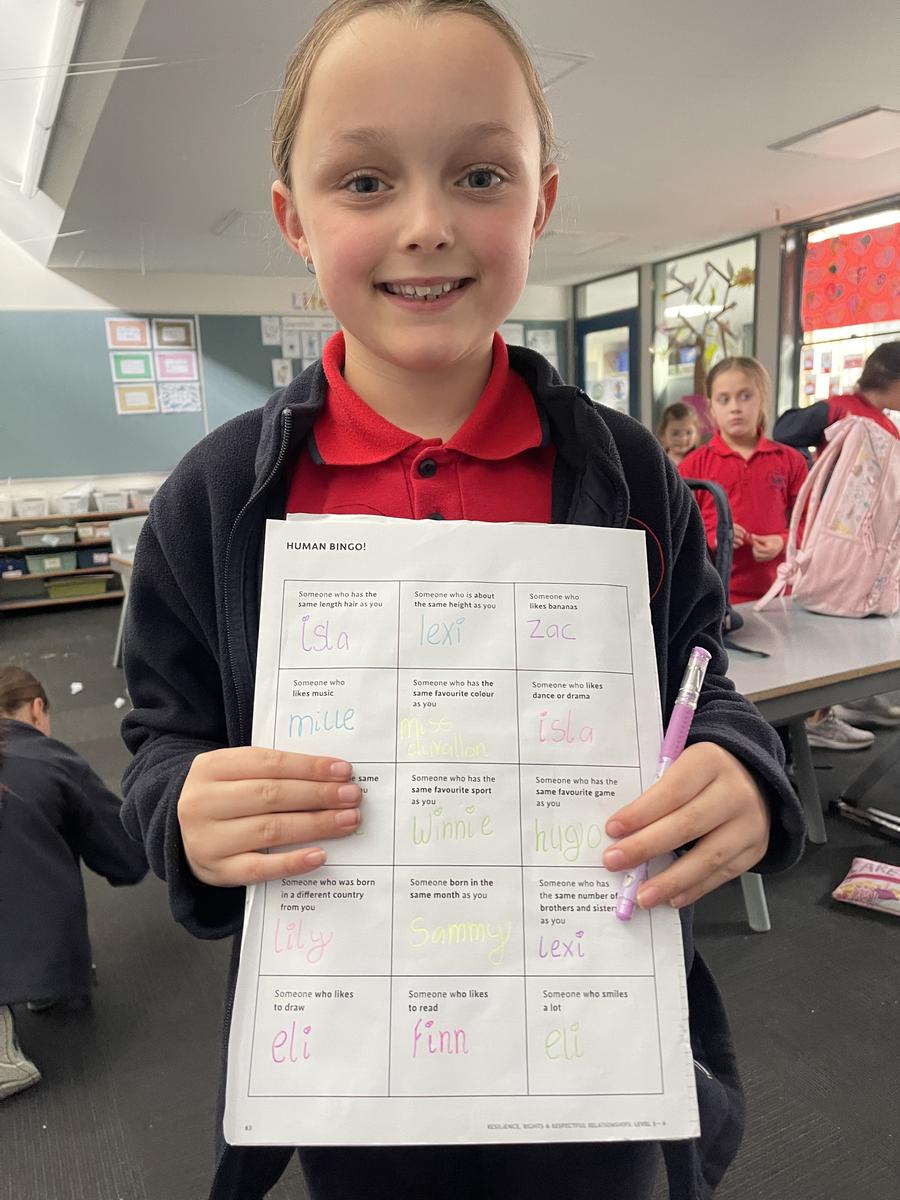 HUMAN BINGO!
Someone who has the
same length hair as you
isla
Someone who is about
the same height as you
lexi
Someone who
likes bananas
zac
Someone who
likes music
mille
Someone who has the
same favourite colour
as you
miss
duvallon
Someone who likes
dance or drama
isla
same
Someone who has the
same favourite sport
as you
Winnie
Someone who has the
same favourite game
as you
hugo
Someone who was born
in a different country
from you
Lily
Someone born in the
same month as you
Sammy
Someone who has
the same number of
brothers and sisters
as you
lexi
Someone who likes
to draw
eli
Someone who likes
to read
Finn
Someone who smiles
a lot
eli
63
RESILIENCE, RIGHTS & RESPECTFUL RELATIONSHIPS: LEVEL 3–4